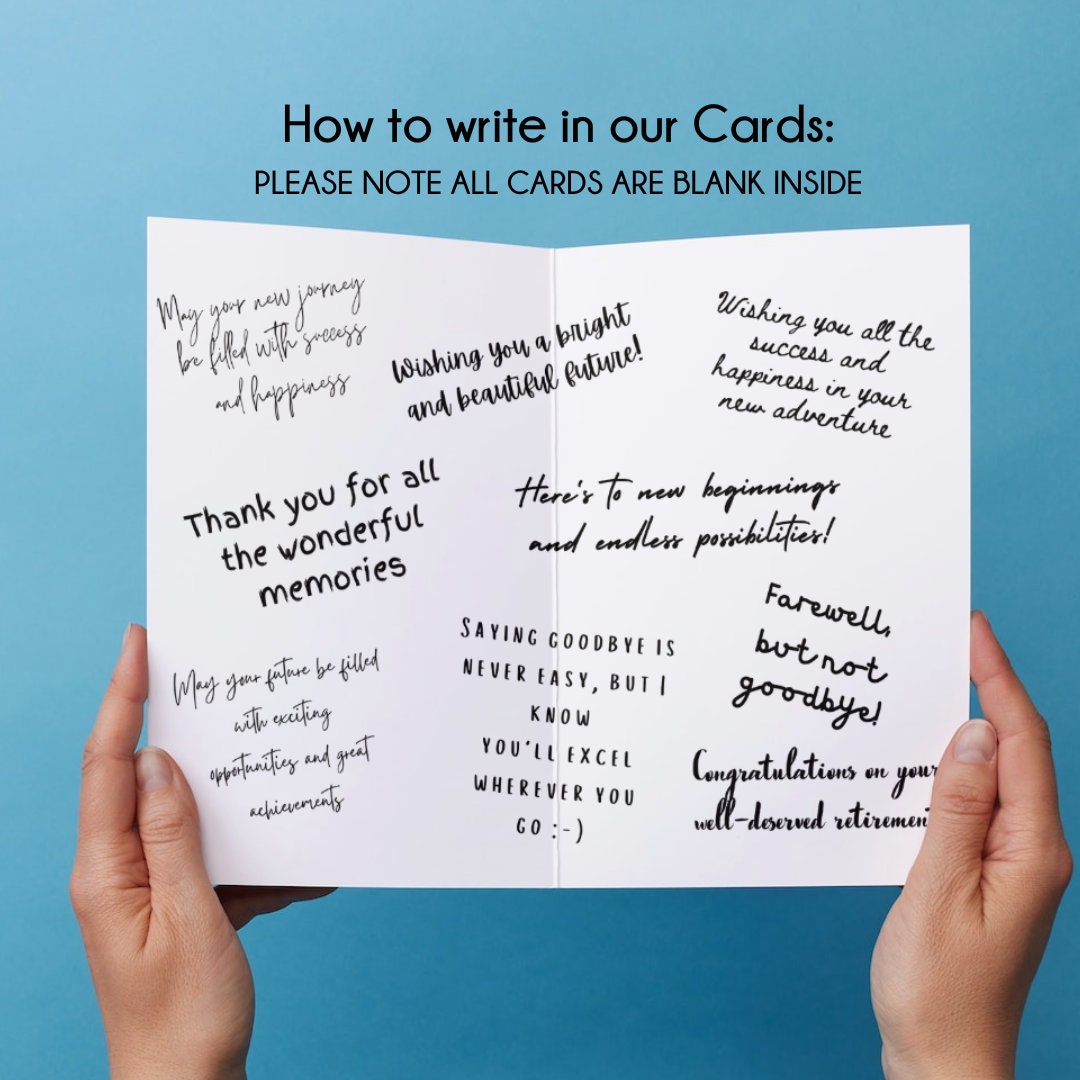 How to write in our Cards:
PLEASE NOTE ALL CARDS ARE BLANK INSIDE
May your new journey
be filled with success
and happiness
Wishing you a bright
and beautiful future!
Wishing you all the
success and
happiness in your
new adventure
Thank you for all
the wonderful
memories
Here's to new beginnings
and endless possibilities!
Farewell,
but not
goodbye!
May your future be filled
with exciting
opportunities and great
achievements
SAYING GOODBYE IS
NEVER EASY, BUT I
KNOW
YOU'LL EXCEL
WHEREVER YOU
GO :-)
Congratulations on your
well-deserved retirement